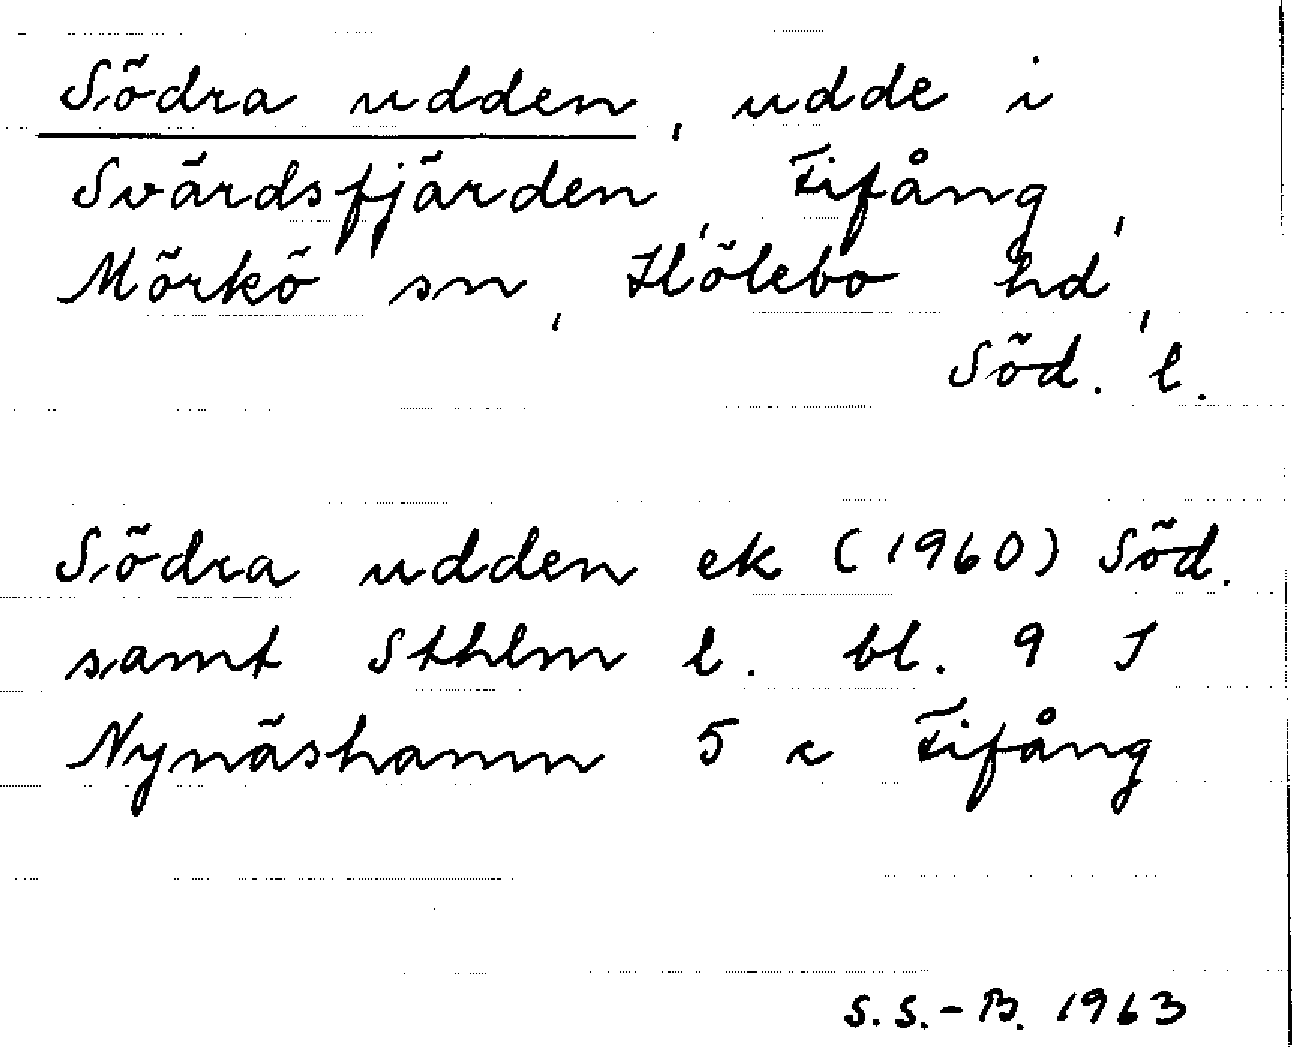 Södra udden, udde i
Svärdsfjärden, Fifång,
Mörkö sn, Hölebo hd,
Söd. l.
Södra udden ek (1960) Söd.
samt Sthlm l. bl. 9 I
Nynäshamn 5 c Fifång
S.S.-B. 1963